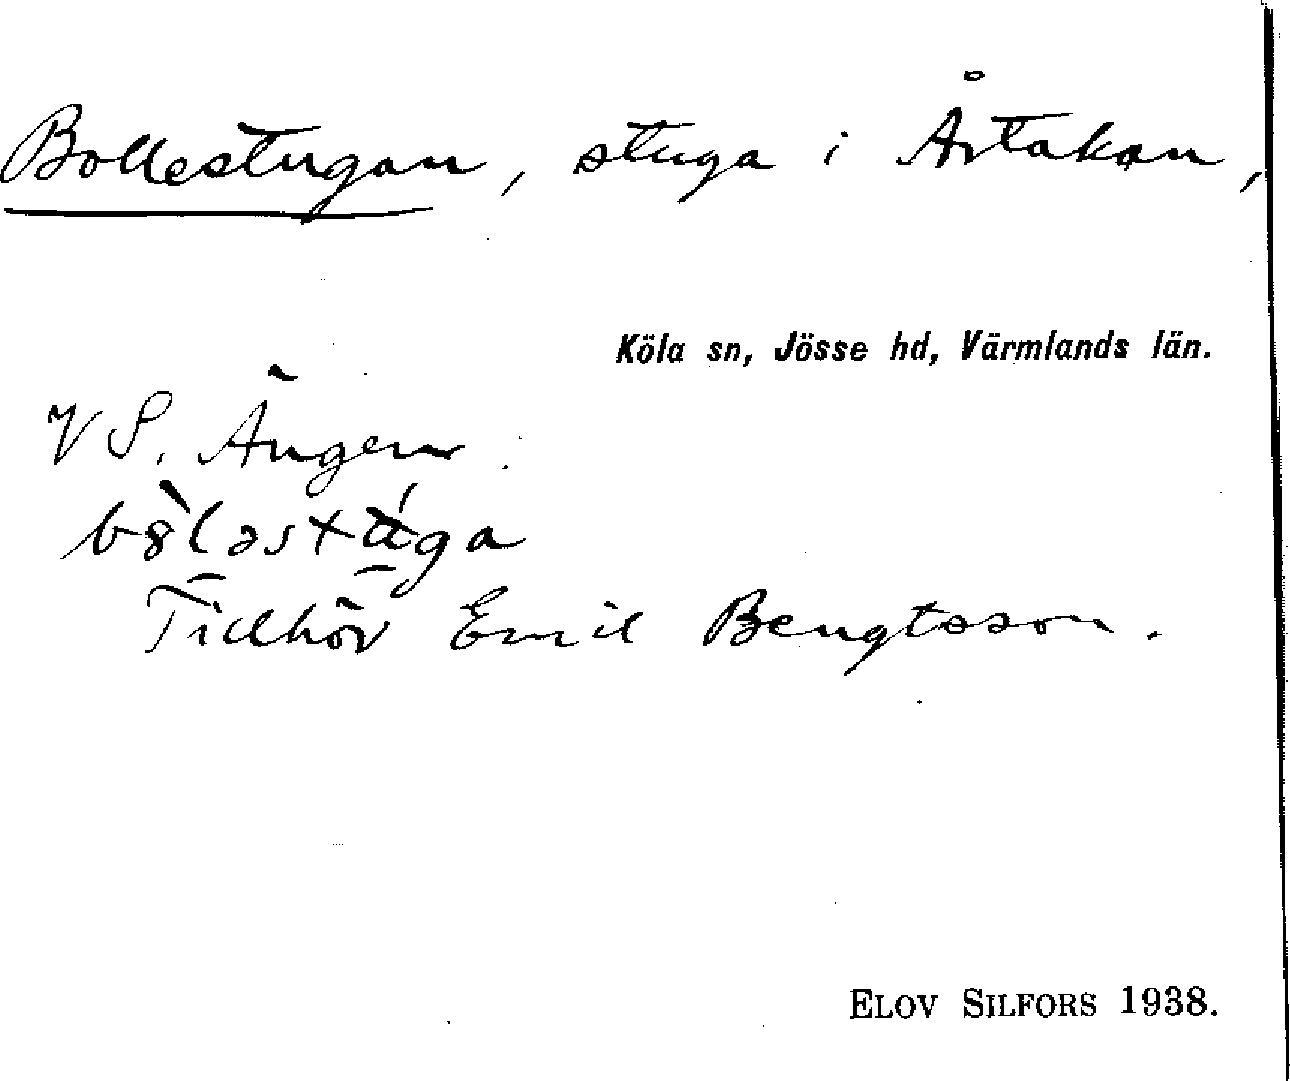 Bollestugan, stuga i Årtakan,
Köla sn, Jösse hd, Värmlands län.
VS. Ängen.
Tillhör Emil Bengtsson.
ELOV SILFORS 1938.